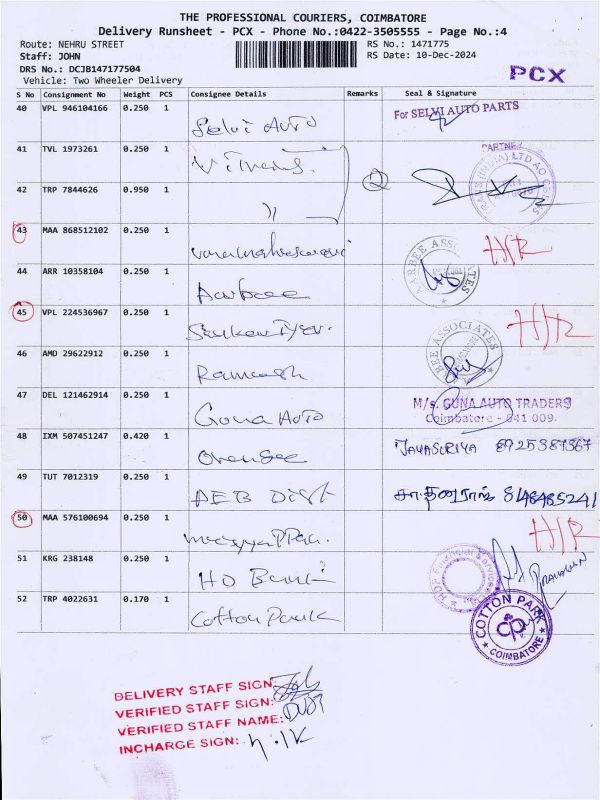 THE PROFESSIONAL COURIERS, COIMBATORE
Delivery Runsheet - PCX - Phone No.:0422-3505555 - Page No.:4
Route: NEHRU STREET
RS No.: 1471775
Staff: JOHN
RS Date: 10-Dec-2024
DRS No.: DCJB147177504
Vehicle: Two Wheeler Delivery
PCX
S No Consignment No Weight PCS Consignee Details Remarks Seal & Signature
40 VPL 946104166 0.250 1 Selvi Auto For SELVI AUTO PARTS
41 TVL 1973261 0.250 1 PARTNER
42 TRP 7844626 0.950 1 "
43 MAA 868512102 0.250 1 H/R
44 ARR 10358104 0.250 1 Aarbee AARBEE ASSOCIATES
45 VPL 224536967 0.250 1 H/R
46 AMD 29622912 0.250 1 Ramesh BEE ASSOCIATES
47 DEL 121462914 0.250 1 Guna Auto M/s. GUNA AUTO TRADERS
Coimbatore - 641 009.
48 IXM 507451247 0.420 1 JAYASURIYA
49 TUT 7012319 0.250 1 AEB Dist
50 MAA 576100694 0.250 1 H/R
51 KRG 238148 0.250 1 HD Bank
52 TRP 4022631 0.170 1 Cotton Park COTTON PARK
cp
COIMBATORE
DELIVERY STAFF SIGN:
VERIFIED STAFF SIGN:
VERIFIED STAFF NAME:
INCHARGE SIGN: